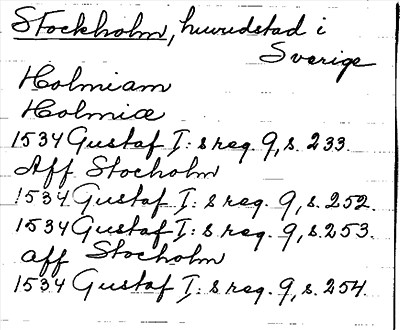 Stockholm, huvudstad i
Sverige
Holmiam
Holmiæ
1534 Gustaf I: s reg. 9, s. 233.
Aff Stocholm
1534 Gustaf I: s reg. 9, s. 252.
1534 Gustaf I: s reg. 9, s. 253.
aff Stocholm
1534 Gustaf I: s reg. 9, s. 254.